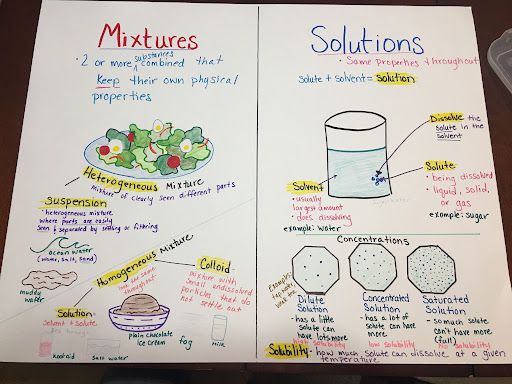 Mixtures
• 2 or more substances combined that
Keep their own physical
properties
Heterogeneous Mixture
Mixture of clearly seen different parts
Suspension
• heterogeneous mixture
where parts are easily
seen & separated by settling or filtering
ocean water
(water, salt, sand)
muddy
water
Homogeneous Mixture
look the same
throughout
Colloid:
mixture with
small undissolved
particles that do
not settle out
Solution:
solvent + solute
Koolaid
salt water
plain chocolate
ice cream
fog
milk
Solutions
• Same properties throughout
solute + solvent = solution
Dissolve the
solute in the
solvent
Solvent
• usually
largest amount
• does dissolving
example: water
Solute
• being dissolved
• liquid, solid,
or gas
example: sugar
Concentrations
Examples:
Dilute
Solution
- has a little
solute can
have lots more
high solubility
Concentrated
Solution
- has a lot of
solute can have
more
low solubility
Saturated
Solution
- so much solute
can't have more
(full)
no solubility
Solubility: - how much solute can dissolve at a given
temperature